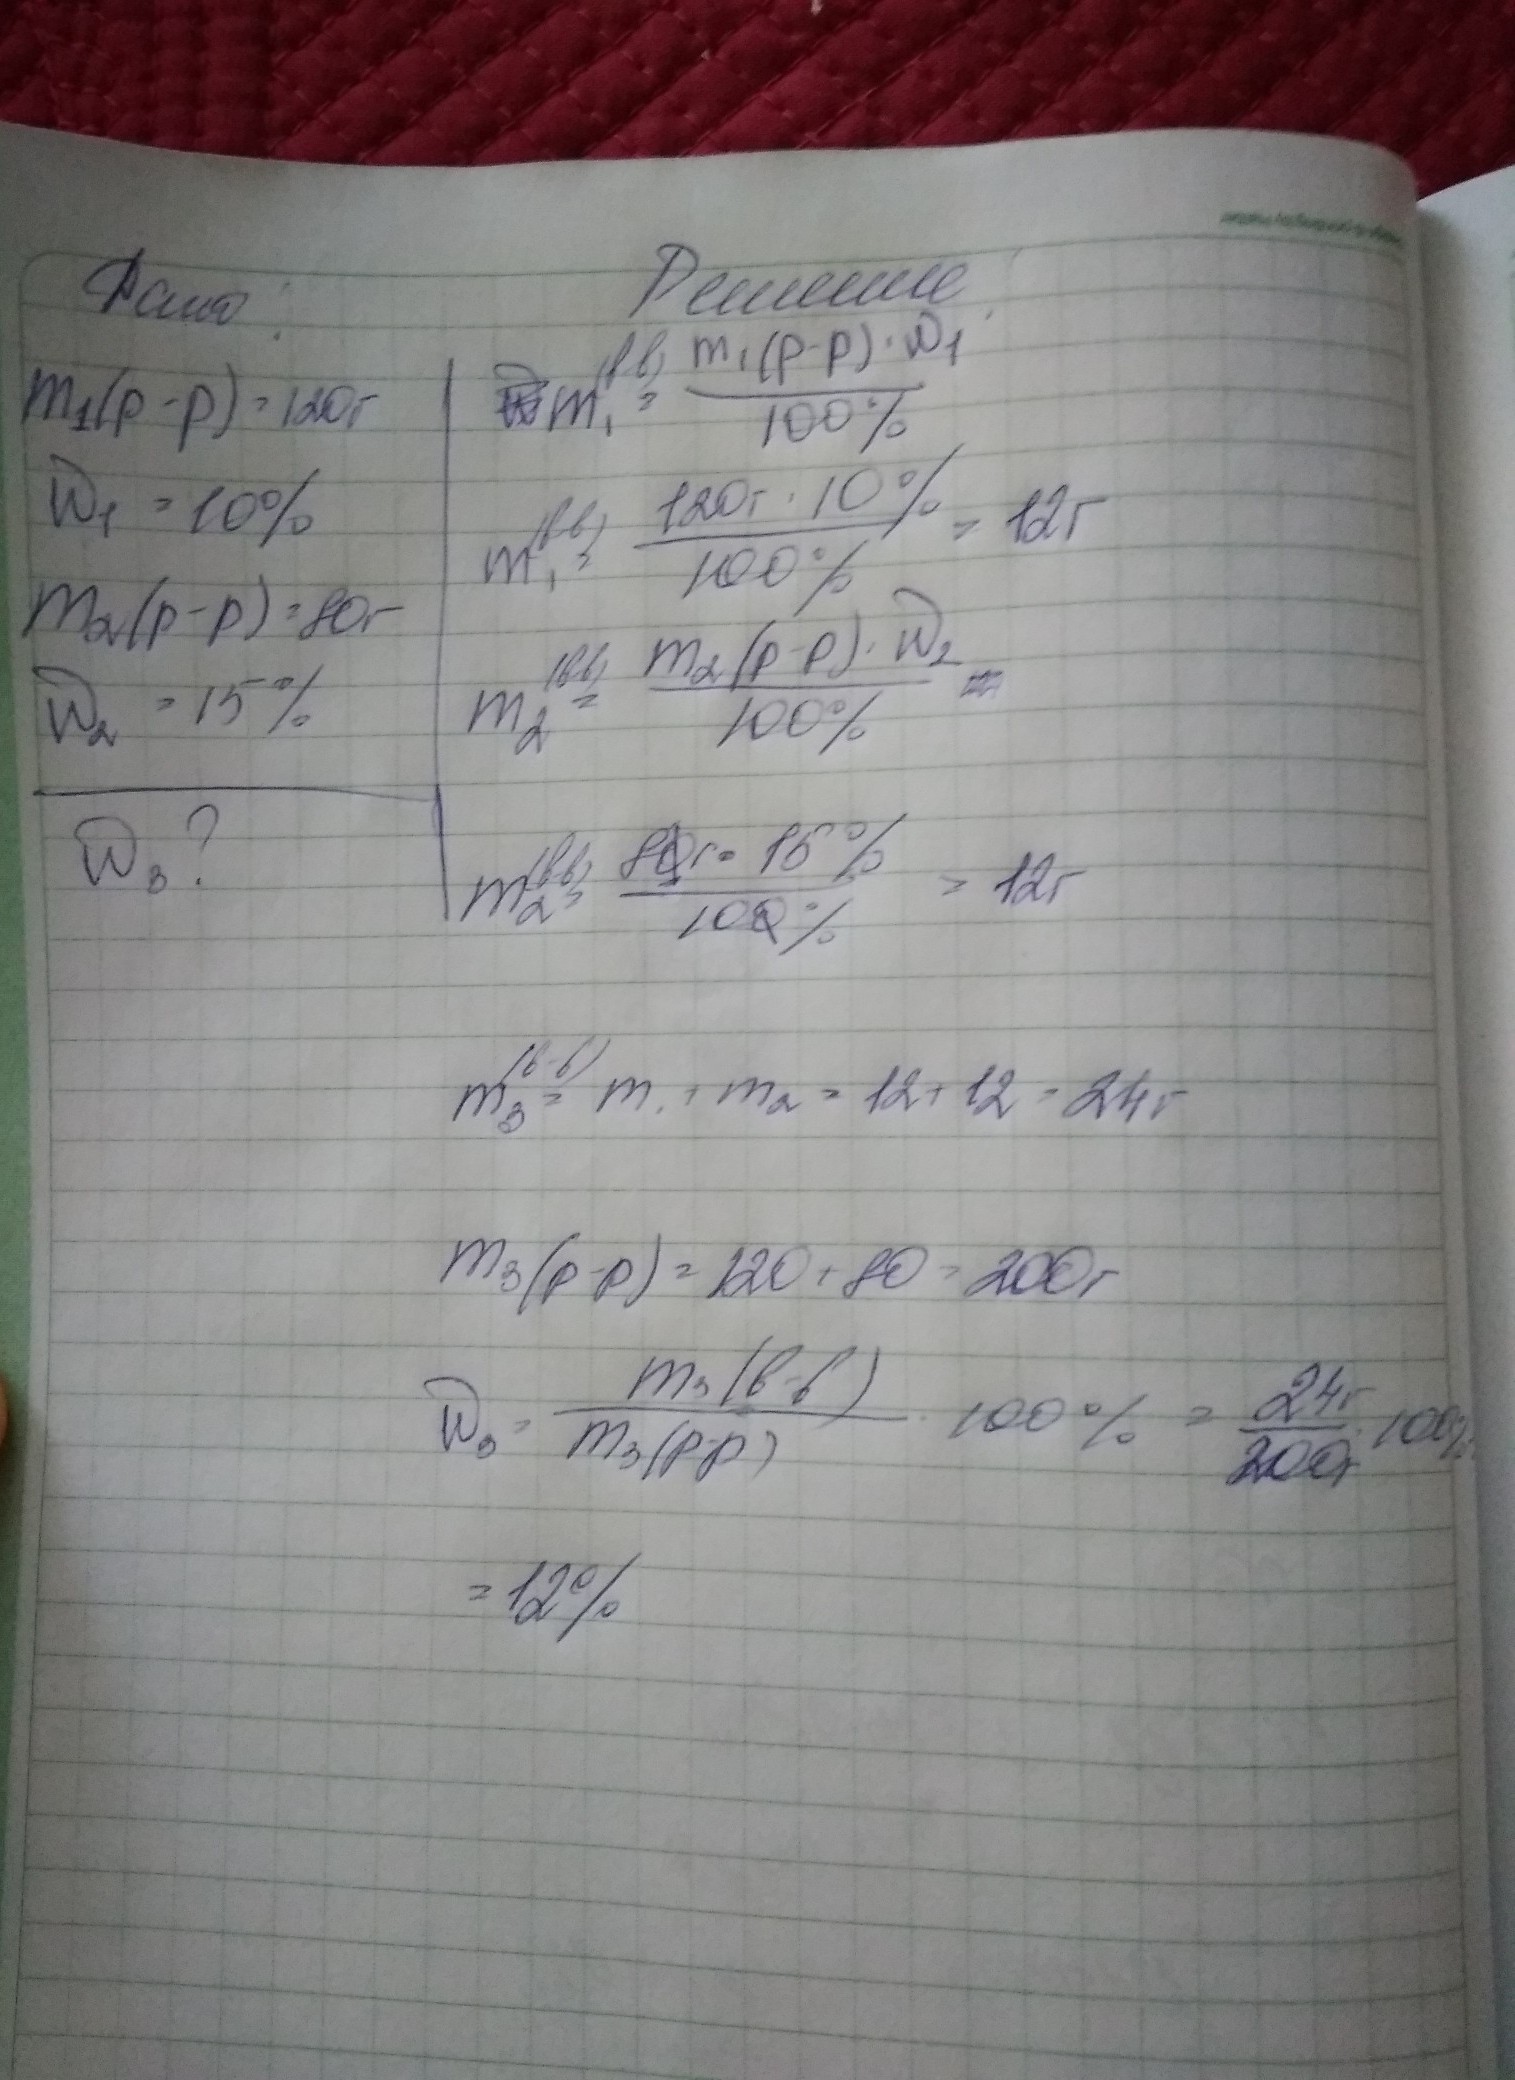 Дано:
m1(р-р) = 120г
w1 = 10%
m2(р-р) = 80г
w2 = 15%
w3 ?
Решение:
m1(вв) = m1(р-р) · w1 / 100%
m1(вв) = 120г · 10% / 100% = 12г
m2(вв) = m2(р-р) · w2 / 100%
m2(вв) = 80г · 15% / 100% = 12г
m3(в-в) = m1 + m2 = 12 + 12 = 24г
m3(р-р) = 120 + 80 = 200г
w3 = m3(в-в) / m3(р-р) · 100% = 24г / 200г · 100%
= 12%